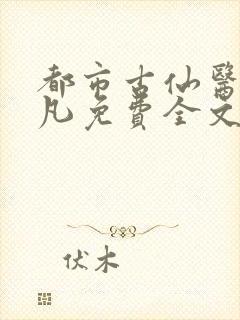 都市古仙醫
凡免費全文
伏木